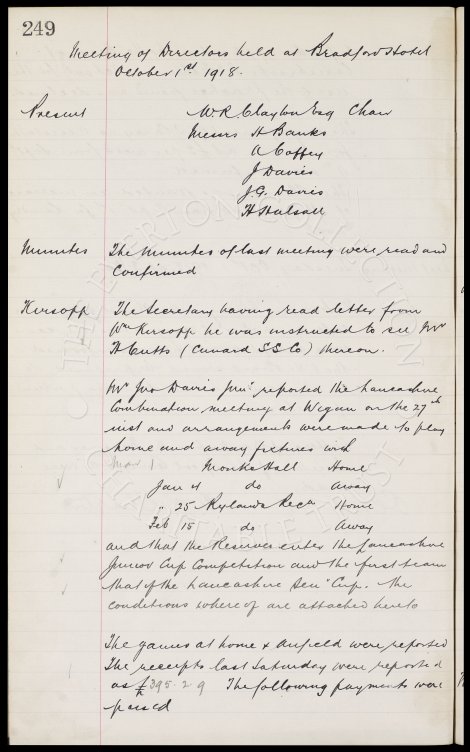 249
Meeting of Directors held at Bradford Hotel
October 1st 1918.
Present W.R. Clayton Esq Chair
Messrs H Banks
A Coffey
J Davies
J.G. Davies
H Halsall
Minutes The Minutes of last meeting were read and
Confirmed
Kirsopp The Secretary having read letter from
Wm Kirsopp he was instructed to see Mr
H Cutts (Cunard S.S. Co) thereon.
Mr Jno Davies Junr reported the Lancashire
Combination meeting at Wigan on the 27th
inst and arrangements were made to play
home and away fixtures with
Monks Hall Home
Jan 4 do away
" 25 Rylands Recn Home
Feb 15 do away
and that the Reserves enter the Lancashire
Junior Cup Competition and the first team
that of the Lancashire Senr Cup. The
conditions whereof are attached hereto
The games at home & Anfield were reported
The receipts last Saturday were reported
as £395.2.9 The following payments were
passed
THE EVERTON COLLECTION
CHARITABLE TRUST